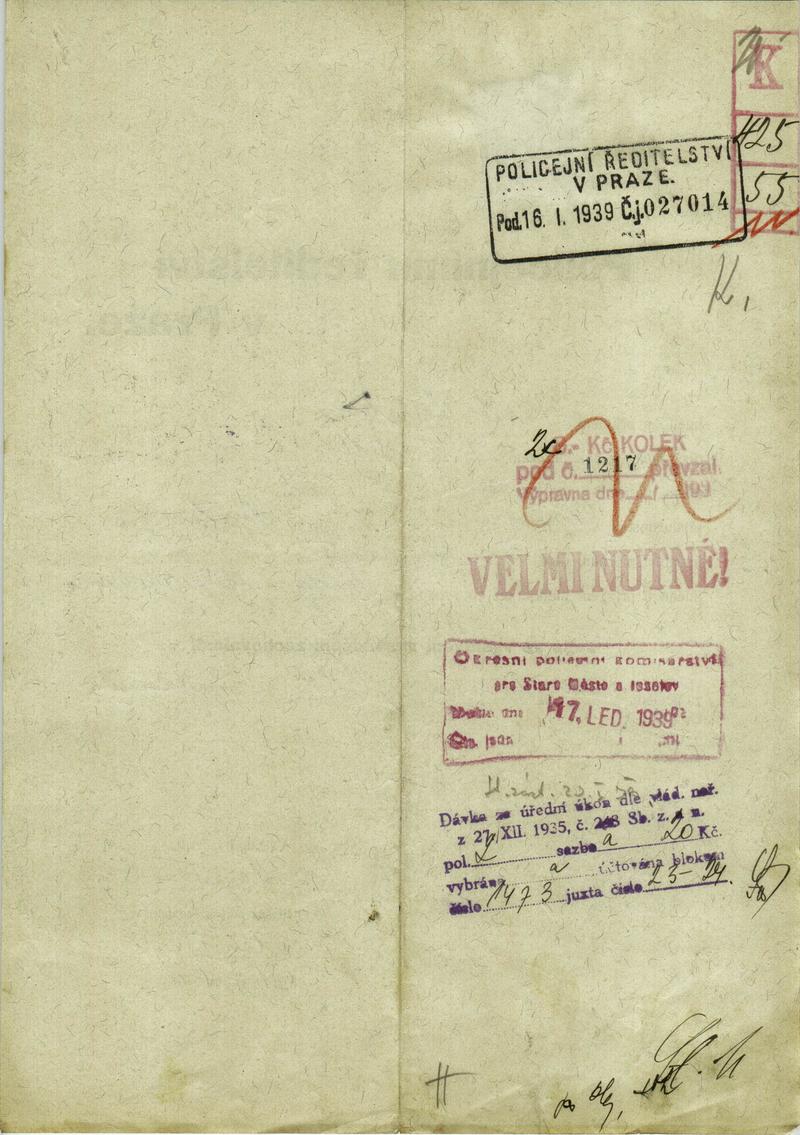 K
425
55
POLICEJNÍ ŘEDITELSTVÍ
V PRAZE.
Pod. 16. I. 1939 Č.j. 027014
K,
2x
Kč KOLEK
pod č. 1217 převzal.
Výpravna dne
VELMI NUTNÉ!
Okresní policejní komisařství
pro Staré Město a Josefov
17. LED. 1939
Dávka za úřední úkon dle vlád. nař.
z 27/XII. 1935, č. 248 Sb. z. a n.
pol. 2 sazba a 20 Kč.
vybrána a účtována blokem
číslo 1473 juxta číslo 23-24.